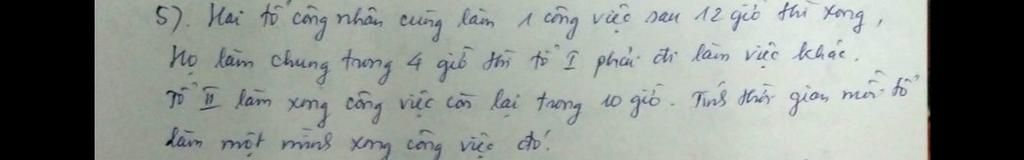 5). Hai tổ công nhân cùng làm 1 công việc sau 12 giờ thì xong,
Họ làm chung trong 4 giờ thì tổ I phải đi làm việc khác.
Tổ II làm xong công việc còn lại trong 10 giờ. Tính thời gian mỗi tổ
làm một mình xong công việc đó.